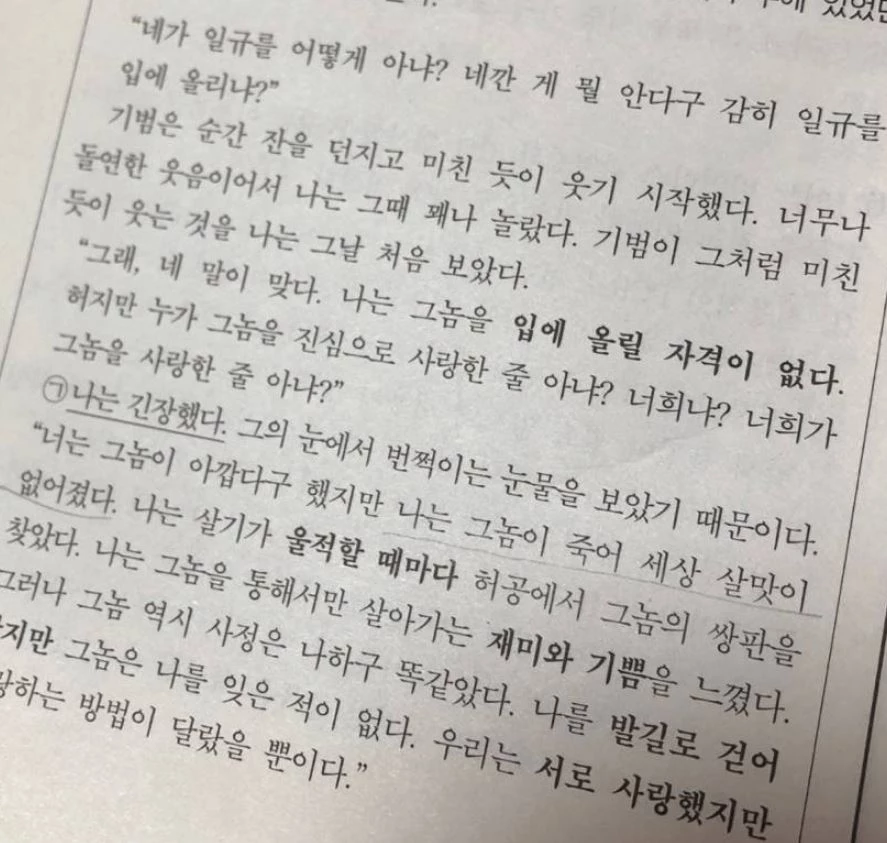 있었던
"네가 일규를 어떻게 아냐? 네깐 게 뭘 안다구 감히 일규를
입에 올리냐?"
기범은 순간 잔을 던지고 미친 듯이 웃기 시작했다. 너무나
돌연한 웃음이어서 나는 그때 꽤나 놀랐다. 기범이 그처럼 미친
듯이 웃는 것을 나는 그날 처음 보았다.
"그래, 네 말이 맞다. 나는 그놈을 입에 올릴 자격이 없다.
허지만 누가 그놈을 진심으로 사랑한 줄 아냐? 너희냐? 너희가
그놈을 사랑한 줄 아냐?"
㉠나는 긴장했다. 그의 눈에서 번쩍이는 눈물을 보았기 때문이다.
"너는 그놈이 아깝다구 했지만 나는 그놈이 죽어 세상 살맛이
없어졌다. 나는 살기가 울적할 때마다 허공에서 그놈의 쌍판을
찾았다. 나는 그놈을 통해서만 살아가는 재미와 기쁨을 느꼈다.
그러나 그놈 역시 사정은 나하구 똑같았다. 나를 발길로 걷어
지만 그놈은 나를 잊은 적이 없다. 우리는 서로 사랑했지만
하는 방법이 달랐을 뿐이다."